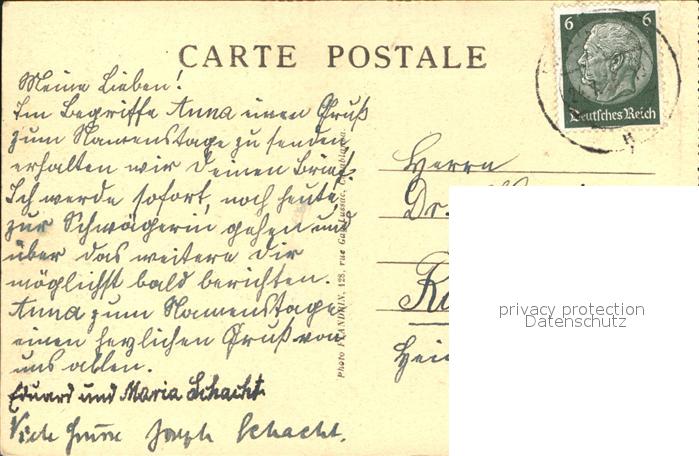 CARTE POSTALE
6 6
Deutsches Reich
Meine Lieben!
Im Begriffe Anna einen Gruß
zum Namenstage zu senden
erhalten wir Deinen Brief.
Ich werde sofort, noch heute
zur Schwägerin gehen und
über das weitere Dir
möglichst bald berichten.
Anna zum Namenstage
einen herzlichen Gruß von
uns allen.
Eduard und Maria Schacht.
Viele Grüße Joseph Schacht.
Photo FLANDRIN, 128, rue Gay-Lussac, Casablanca.
Herrn
Dr.
privacy protection
Datenschutz